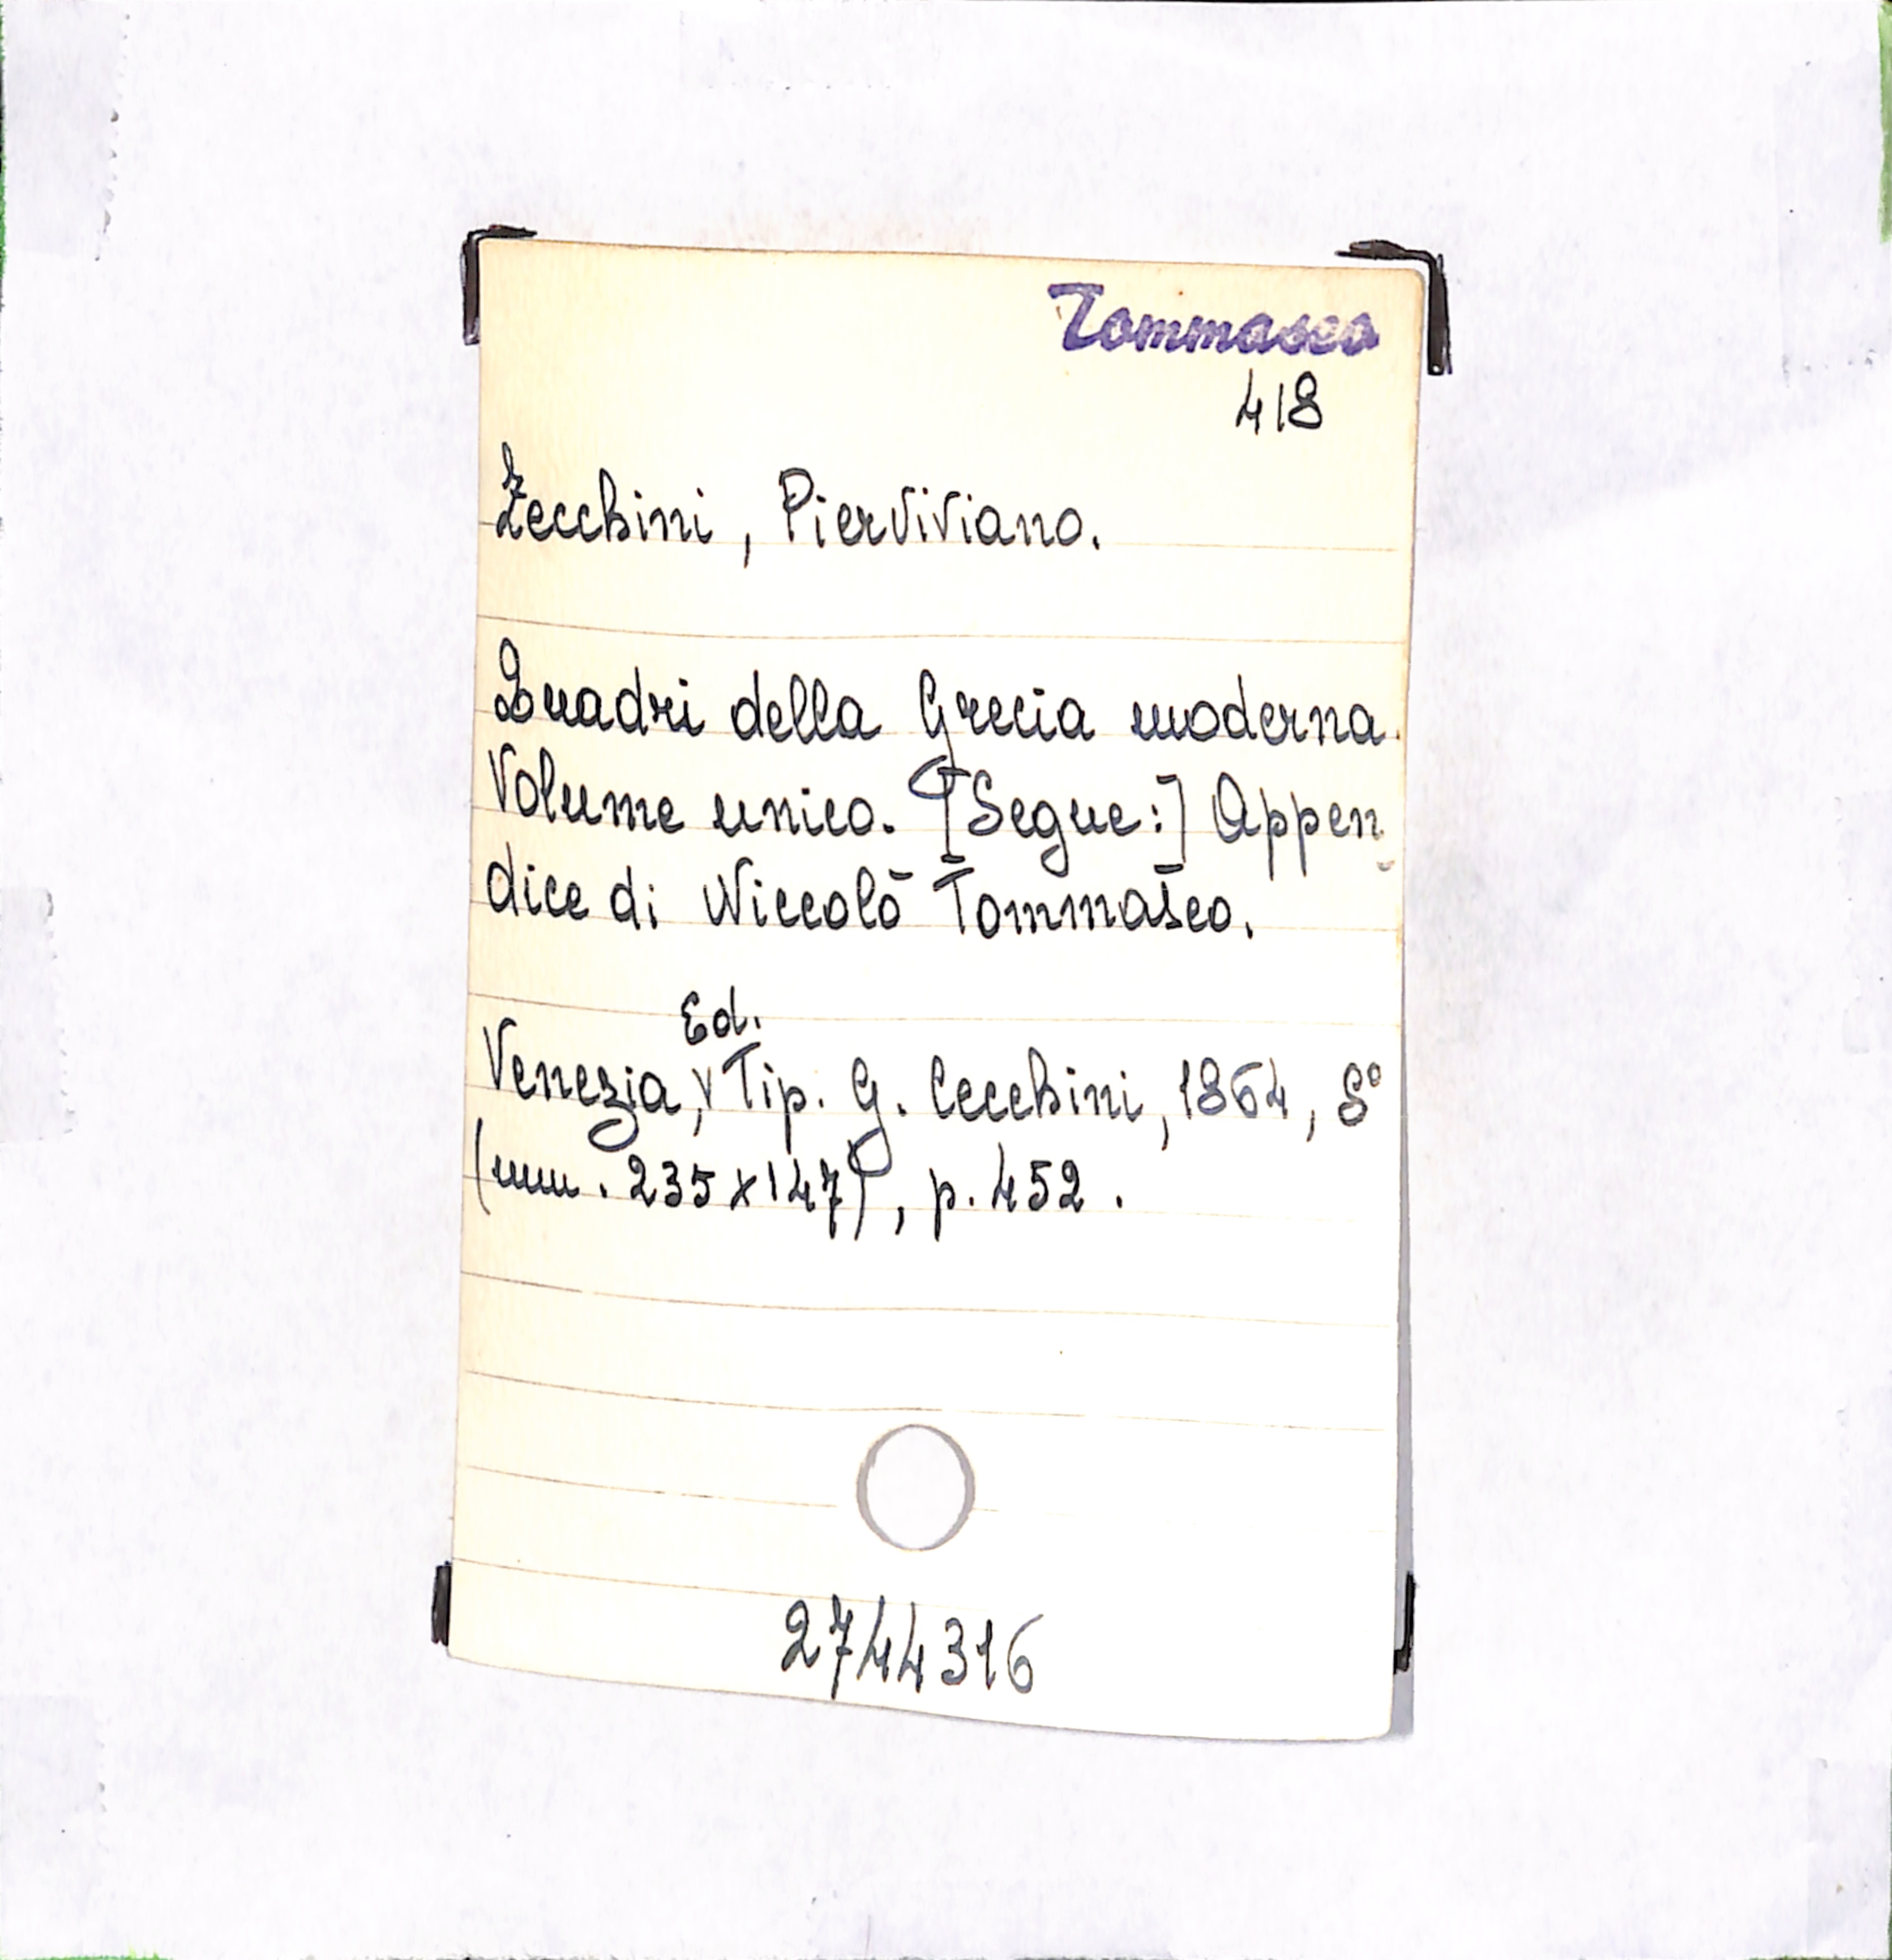 Tommaseo
418
Zecchini, Pierviviano.
Quadri della Grecia moderna.
Volume unico. [Segue:] Appen-
dice di Niccolò Tommaseo.
Ed.
Venezia, Tip. G. Cecchini, 1864, 8°
(mm. 235x147), p. 452.
2744316